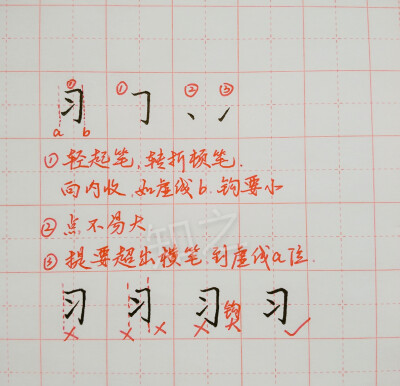 习 ① ㇆ ② 丶 ③ ㇀
a b
①轻起笔、转折顿笔.
向内收、如虚线b.钩要小
②点不易大
③提要超出横笔到虚线a位.
习 习 习 钩大 习